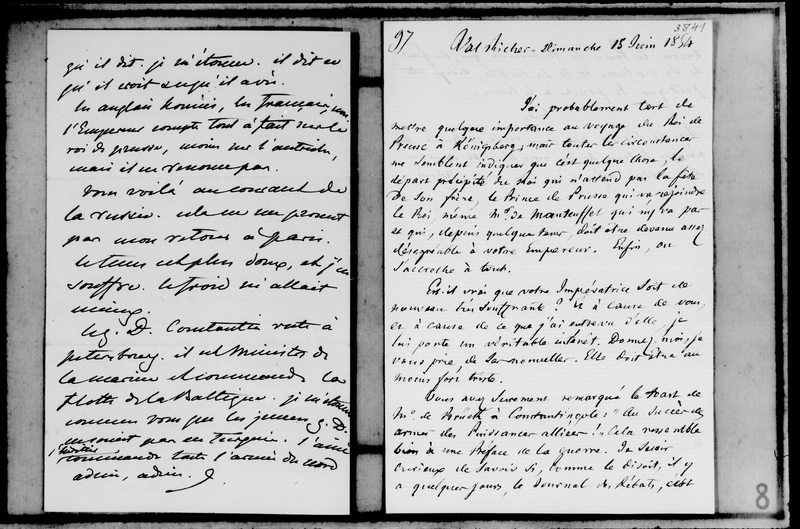 qu'il dit. je m'étonne. il dit ce
qu'il croit ce qu'il a vu.
les anglais honnis, les français, non
l'Empereur compte tout à fait sur le
roi de prusse, moins sur l'autriche,
mais il ne renonce pas.
vous voilà au courant de
la russie. cela ne me permet
pas mon retour à paris.
le tems est plus doux, et j'en
souffre. le froid m'allait
mieux.
le g. D. Constantin reste à
petersbourg. il est Ministre de
la marine et commande la
flotte de la Baltique. je m'étonne
comme vous que les jeunes g. D.
ne soient pas en Turquie. l'ainé
l'héritier
commande toute l'armée du nord
adieu, adieu.
3841
97 Val Richer - Dimanche 18 Juin 1854
J'ai probablement tort de
mettre quelque importance au voyage du Roi de
Prusse à Königsberg ; mais toutes les circonstances
me semblent indiquer que c'est quelque chose, le
départ précipité du Roi qui n'attend pas la fête
de son frère, le Prince de Prusse qui va rejoindre
le Roi, même Mr de Manteuffel qui n'y va pas
et qui, depuis quelque tems, doit être devenu assez
désagréable à votre Empereur. Enfin, on
s'accroche à tout.
Est-il vrai que votre Impératrice soit de
nouveau très souffrante ? Et à cause de vous,
et à cause de ce que j'ai entrevu d'elle, je
lui porte un véritable intérêt. Donnez-moi, je
vous prie de ses nouvelles. Elle doit être au
moins fort triste.
Vous avez surement remarqué le toast de
Mr de Brück à Constantinople : " Au succès des
armes des Puissances alliées ! " Cela ressemble
bien à une préface de la guerre. Je serois
curieux de savoir si, comme le disoit, il y
a quelques jours, le Journal des Débats, c'est
8